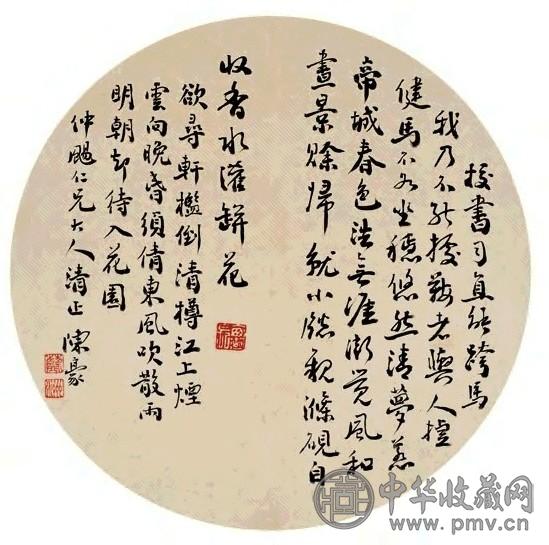 書司直能跨馬
我乃不能據鞍老與人
健馬不如坐穩悠然清夢
帝城春色浩無涯漸覺風和
晝景賒歸就小牕親滌硯自
收香水灌缾花
欲尋軒檻倒清樽江上煙
雲向晚昏須倩東風吹散雨
明朝却待入花園
仲颺仁兄大人清正 陳豪
中华收藏网
www.pmv.cn